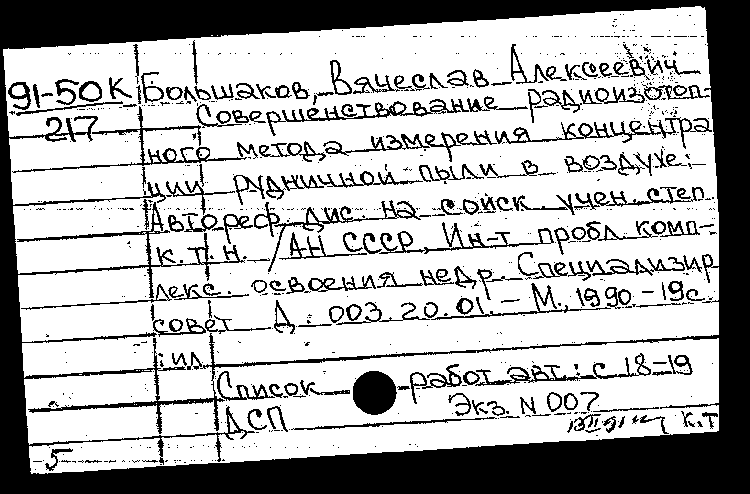 91-50К Большаков, Вячеслав Алексеевич
217 Совершенствование радиоизотоп-
ного метода измерения концентра
ции рудничной пыли в воздухе:
Автореф. дис. на соиск. учен. степ
к.т.н. /АН СССР, Ин-т пробл. комп-
лекс. освоения недр. Специализир
совет Д. 003.20.01. - М., 1990. - 19с.
: ил
Список работ авт.: с 18-19
ДСП Экз. N 007
5 к.т